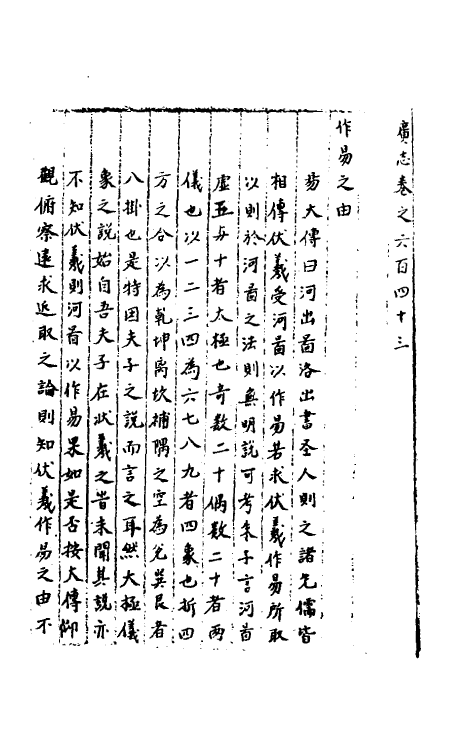 廣志卷之六百四十三
作易之由
易大傳曰河出啚洛出書圣人則之諸先儒皆
相傳伏羲受河啚以作易若求伏羲作易所取
以則於河啚之法則無明説可考朱子言河啚
虛五与十者太極也奇数二十偶数二十者兩
儀也以一二三四為六七八九者四象也析四
方之合以為乾坤离坎補隅之空為兌巽艮者
八掛也是特因夫子之説而言之耳然大極儀
象之説始自吾夫子在伏羲之旹未聞其説亦
不知伏羲則河啚以作易果如是否按大傳仰
觀俯察遠求近取之論則知伏羲作易之由不